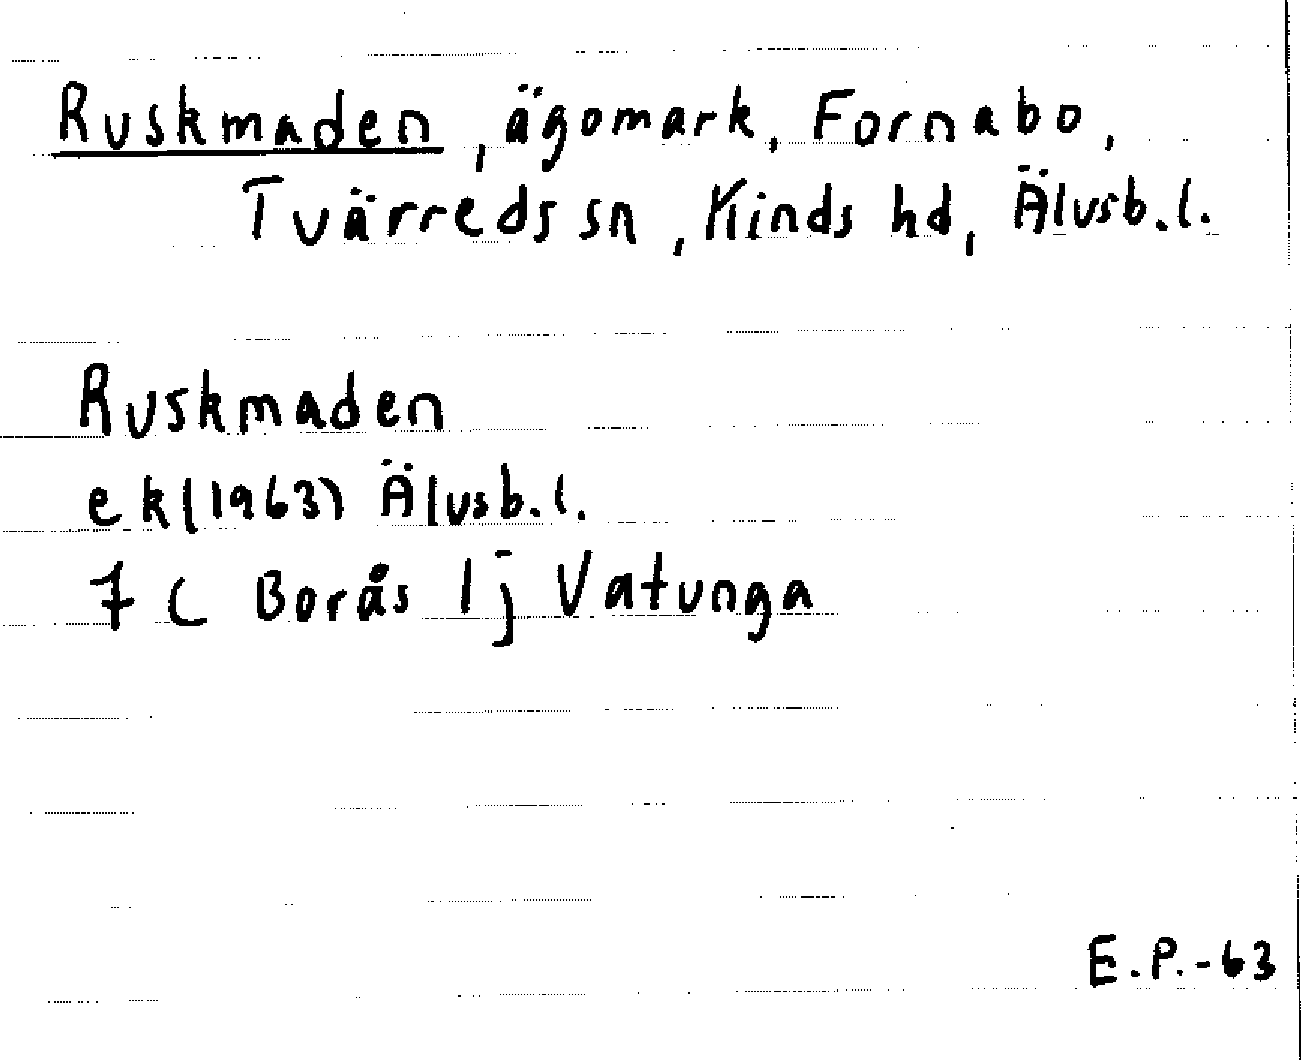 Ruskmaden, ägomark, Fornabo,
Tvärreds sn, Kinds hd, Älvsb.l.
Ruskmaden
ek(1963) Älvsb.l.
7 C Borås 1 j Vatunga
E.P.-63